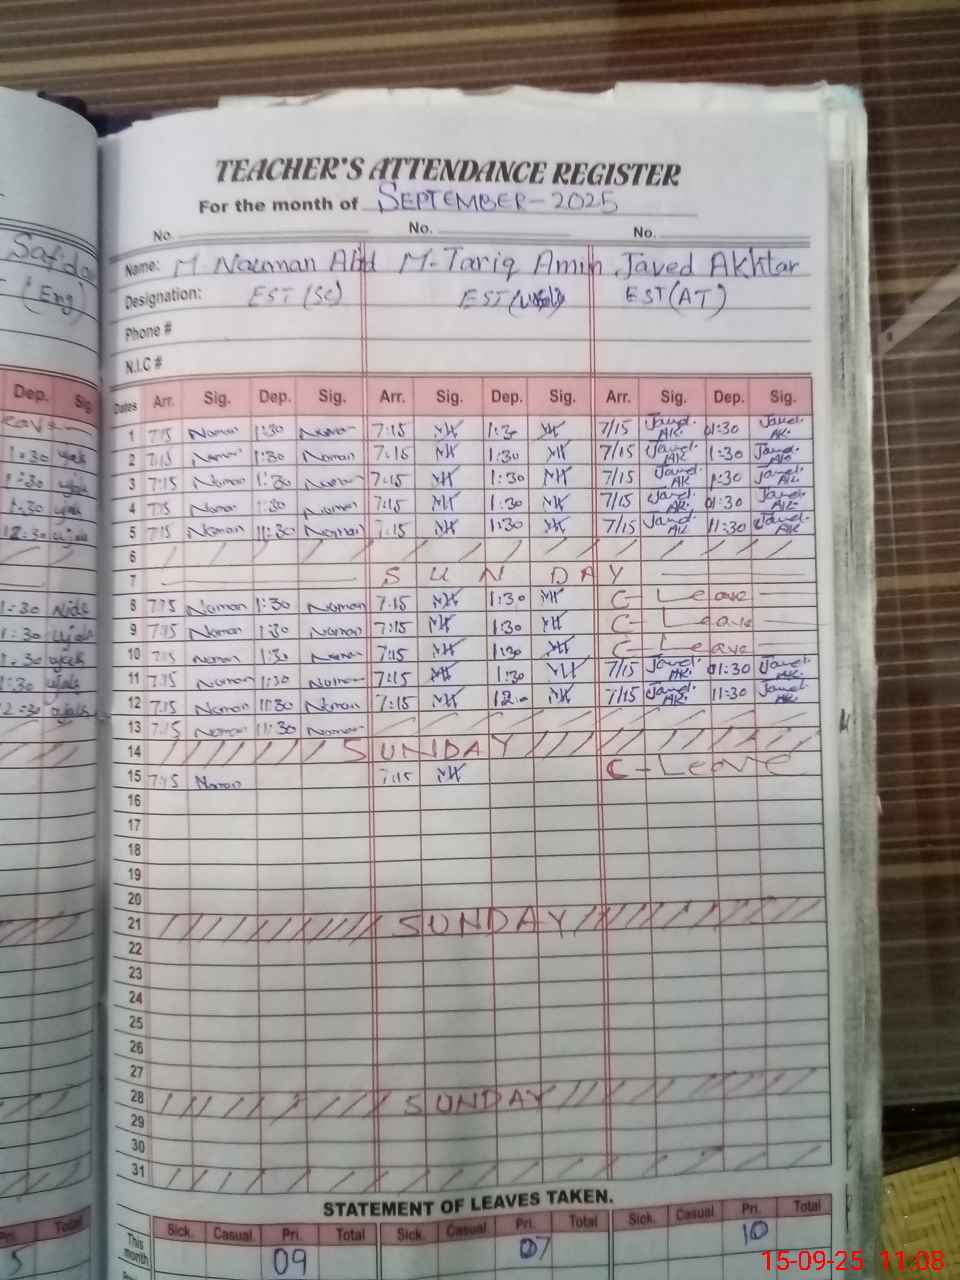 TEACHER'S ATTENDANCE REGISTER
For the month of SEPTEMBER-2025
No. No. No.
Name: M. Nauman Ahd M-Tariq Amin Javed Akhtar
(Eng)
Designation: EST (SC) EST EST (AT)
Phone #
N.I.C #
Dep. Sig.
Dates Arr. Sig. Dep. Sig. Arr. Sig. Dep. Sig. Arr. Sig. Dep. Sig.
1 7:15 Noman 1:30 Noman 7:15 1:30 7/15 Javed. AK. 01:30 Javed. AK.
1:30 2 7:15 Noman 1:30 Noman 7:15 1:30 7/15 Javed. AK 1:30 Javed. AK
1:30 3 7:15 Noman 1:30 Noman 7:15 1:30 7/15 Javed. AK 1:30 Javed. AK
1:30 4 7:15 Noman 1:30 Noman 7:15 1:30 7/15 Javed. AK. 01:30 Javed. AK
12:30 5 7:15 Noman 11:30 Noman 7:15 1:30 7/15 Javed. AK 11:30 Javed. AK
6
7 SUNDAY
1:30 8 7:15 Noman 1:30 Noman 7:15 1:30 C-Leave
1:30 9 7:15 Noman 1:30 Noman 7:15 1:30 C-Leave
1:30 10 7:15 Noman 1:30 Noman 7:15 1:30 C-Leave
1:30 11 7:15 Noman 11:30 Noman 7:15 1:30 7/15 Javed. AK. 01:30 Javed. AK.
12:30 12 7:15 Noman 11:30 Noman 7:15 7/15 Javed. AK. 11:30 Javed. AK
13 7:15 Noman 11:30 Noman
14 SUNDAY
15 7:15 Noman 7:15 C-Leave
16
17
18
19
20
21 SUNDAY
22
23
24
25
26
27
28 SUNDAY
29
30
31
STATEMENT OF LEAVES TAKEN.
Total Sick. Casual. Pri. Total Sick. Casual. Pri. Total Sick. Casual. Pri. Total
5 This month 09 07 10
15-09-25 11:08